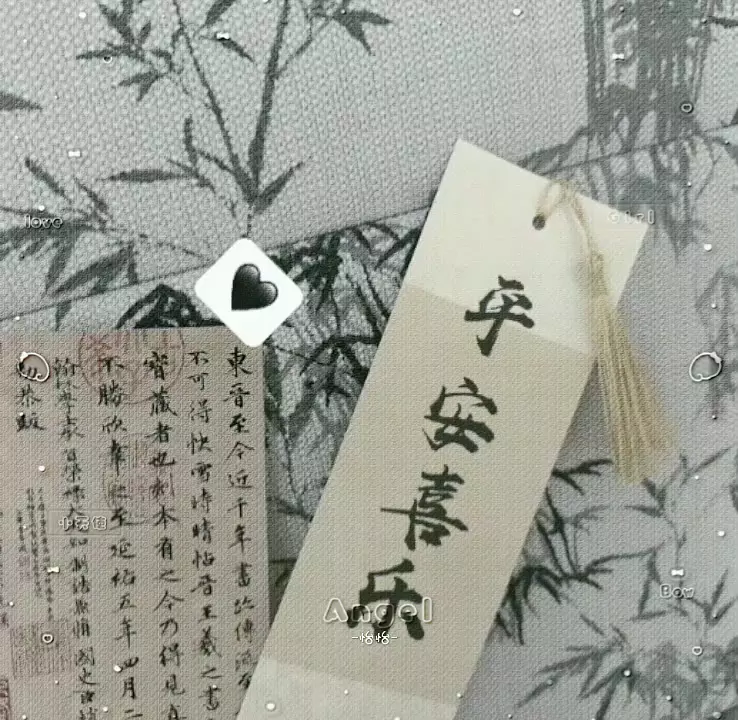 平安喜乐
東晉至今近千年書跡傳流至
不可得快雪時晴帖晉王羲之書
寶藏者也刻本有之今乃得見真
不勝欣幸之至延祐五年四月二
love
Girl
Angel
Bow